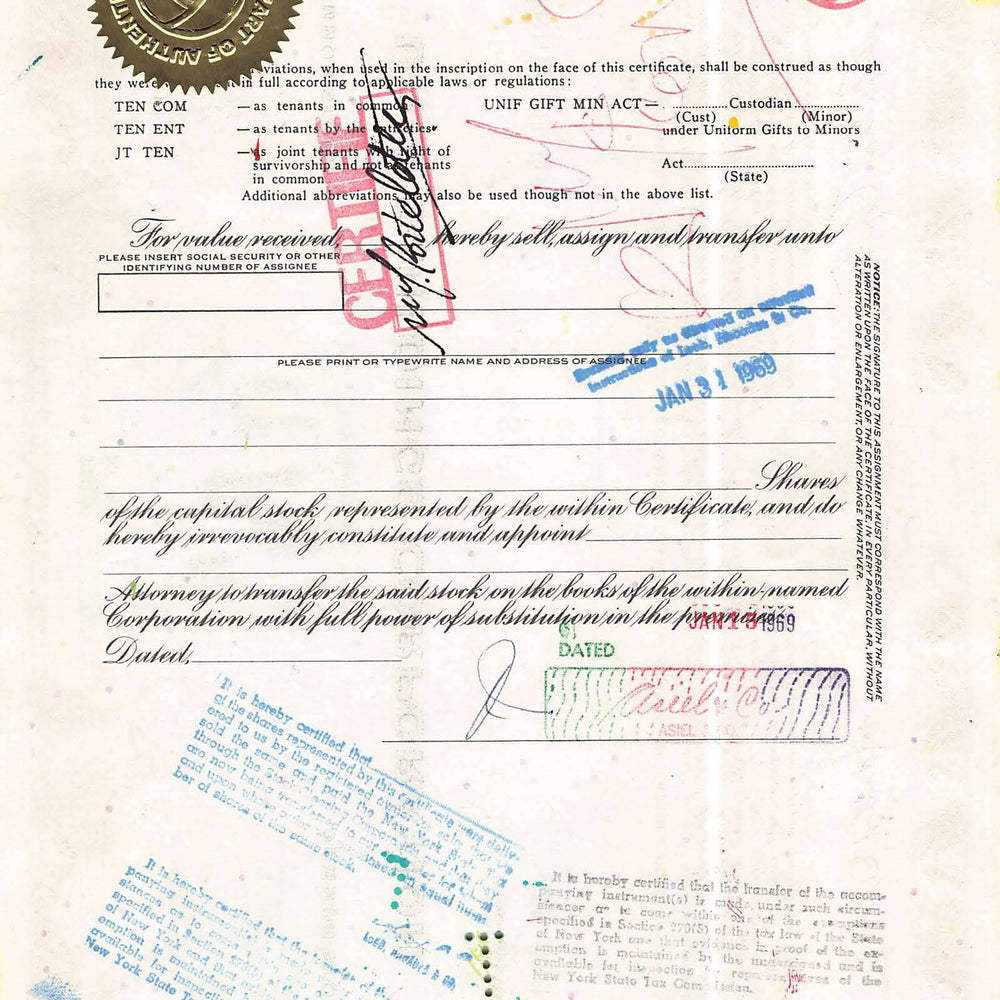 ART OF AUTHENTI
viations, when used in the inscription on the face of this certificate, shall be construed as though
they were in full according to applicable laws or regulations:
TEN COM —as tenants in common UNIF GIFT MIN ACT— ..............Custodian ..............
(Cust) (Minor)
TEN ENT —as tenants by the entireties under Uniform Gifts to Minors
JT TEN —as joint tenants with right of
survivorship and not as tenants
in common
Act..............................
(State)
Additional abbreviations may also be used though not in the above list.
CERTIFIE
For value received, hereby sell, assign and transfer unto
PLEASE INSERT SOCIAL SECURITY OR OTHER
IDENTIFYING NUMBER OF ASSIGNEE
PLEASE PRINT OR TYPEWRITE NAME AND ADDRESS OF ASSIGNEE
only as directed on
instructions of Loeb, Rhoades & Co.
JAN 31 1969
Shares
of the capital stock represented by the within Certificate, and do
hereby irrevocably constitute and appoint
Attorney to transfer the said stock on the books of the within-named
Corporation with full power of substitution in the premises.
JAN 15 1969
Dated,
61
DATED
Asiel & Co.
ASIEL
NOTICE: THE SIGNATURE TO THIS ASSIGNMENT MUST CORRESPOND WITH THE NAME
AS WRITTEN UPON THE FACE OF THE CERTIFICATE, IN EVERY PARTICULAR, WITHOUT
ALTERATION OR ENLARGEMENT, OR ANY CHANGE WHATEVER.
It is hereby certified that
of the shares represented by this certificate were deliv-
ered to us by the registered owner
sold the same and paid the New York State
through the Stock Clearing Corporation
are now being transferred to our
and upon whose
ber of shares of the same stock.
It is hereby certified that the transfer of the
panying instrument(s)
stances as to come
specified in Section 270(5)
of New York and that
emption is maintained
available for inspection
New York State T
LOEB, RHOADES & CO.
It is hereby certified that the transfer of the accom-
panying instrument(s) is made under such circum-
stances as to come within one of the exemptions
specified in Section 270(5) of the tax law of the State
of New York and that evidence in proof of the ex-
emption is maintained by the undersigned and is
available for inspection by representatives of the
New York State Tax Commission.